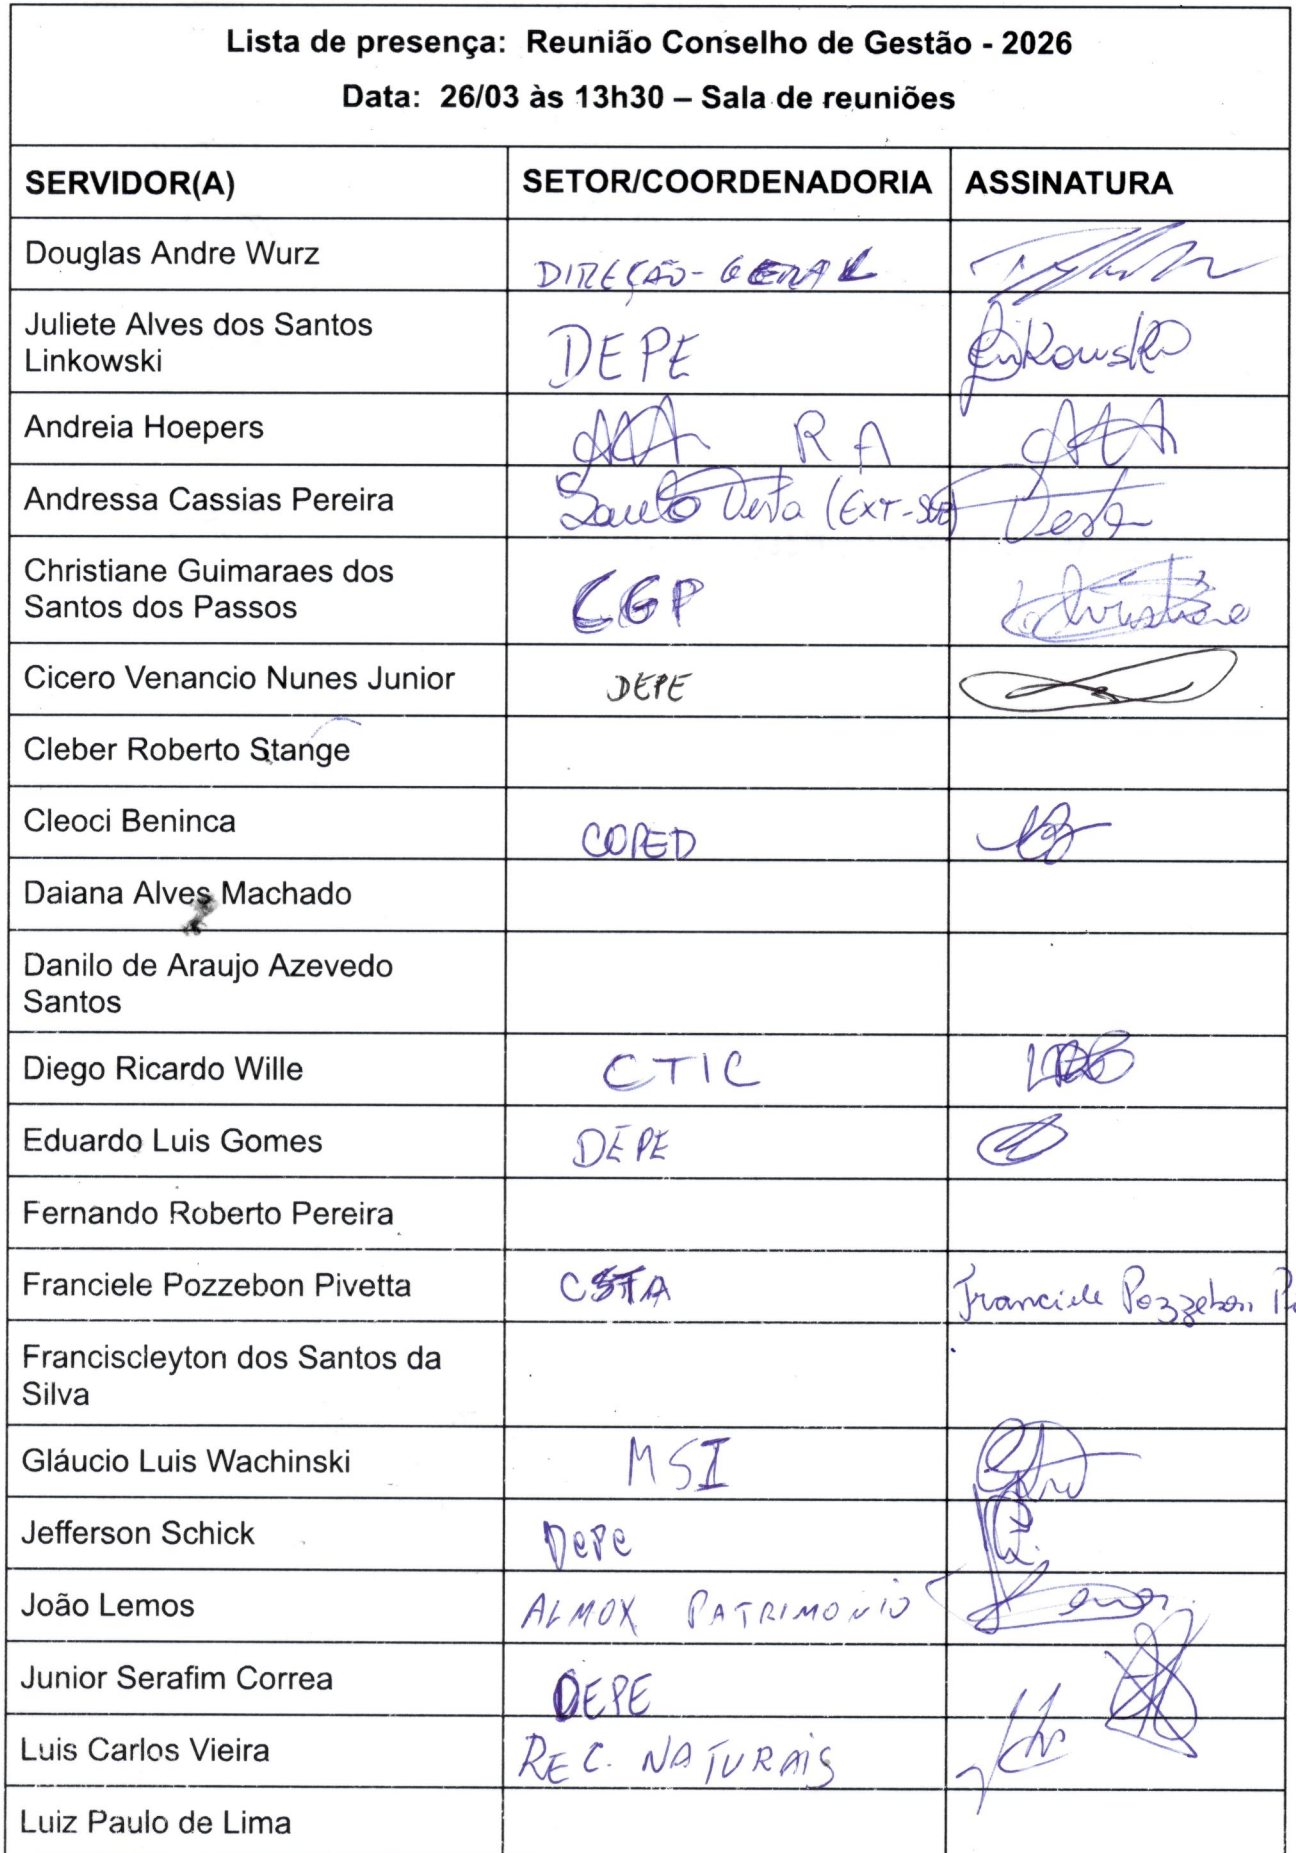 Lista de presença: Reunião Conselho de Gestão - 2026
Data: 26/03 às 13h30 – Sala de reuniões
SERVIDOR(A) SETOR/COORDENADORIA ASSINATURA
Douglas Andre Wurz DIREÇÃO-GERAL
Juliete Alves dos Santos
Linkowski DEPE Linkowski
Andreia Hoepers RA
Andressa Cassias Pereira (EXT-
Christiane Guimaraes dos
Santos dos Passos CGP Christiane
Cicero Venancio Nunes Junior DEPE
Cleber Roberto Stange
Cleoci Beninca COPED
Daiana Alves Machado
Danilo de Araujo Azevedo
Santos
Diego Ricardo Wille CTIC
Eduardo Luis Gomes DEPE
Fernando Roberto Pereira
Franciele Pozzebon Pivetta CSTA Franciele Pozzebon
Franciscleyton dos Santos da
Silva
Gláucio Luis Wachinski MSI
Jefferson Schick DePe
João Lemos ALMOX PATRIMONIO
Junior Serafim Correa DEPE
Luis Carlos Vieira REC. NATURAIS
Luiz Paulo de Lima